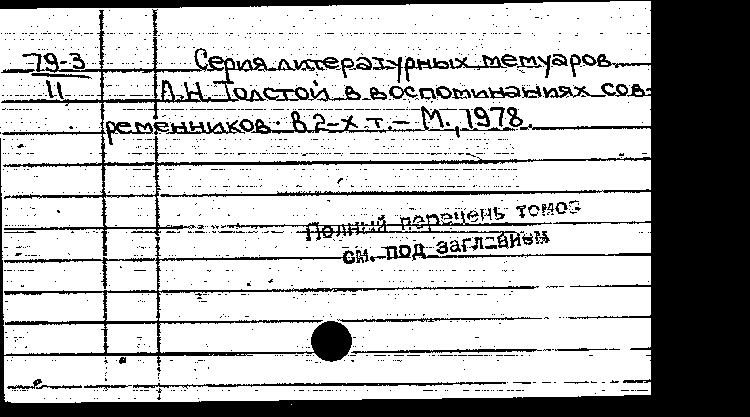 79-3
11
Серия литературных мемуаров.
Л.Н. Толстой в воспоминаниях сов-
ременников. В 2-х т. – М., 1978.
Полный перечень томов
см. под заглавием